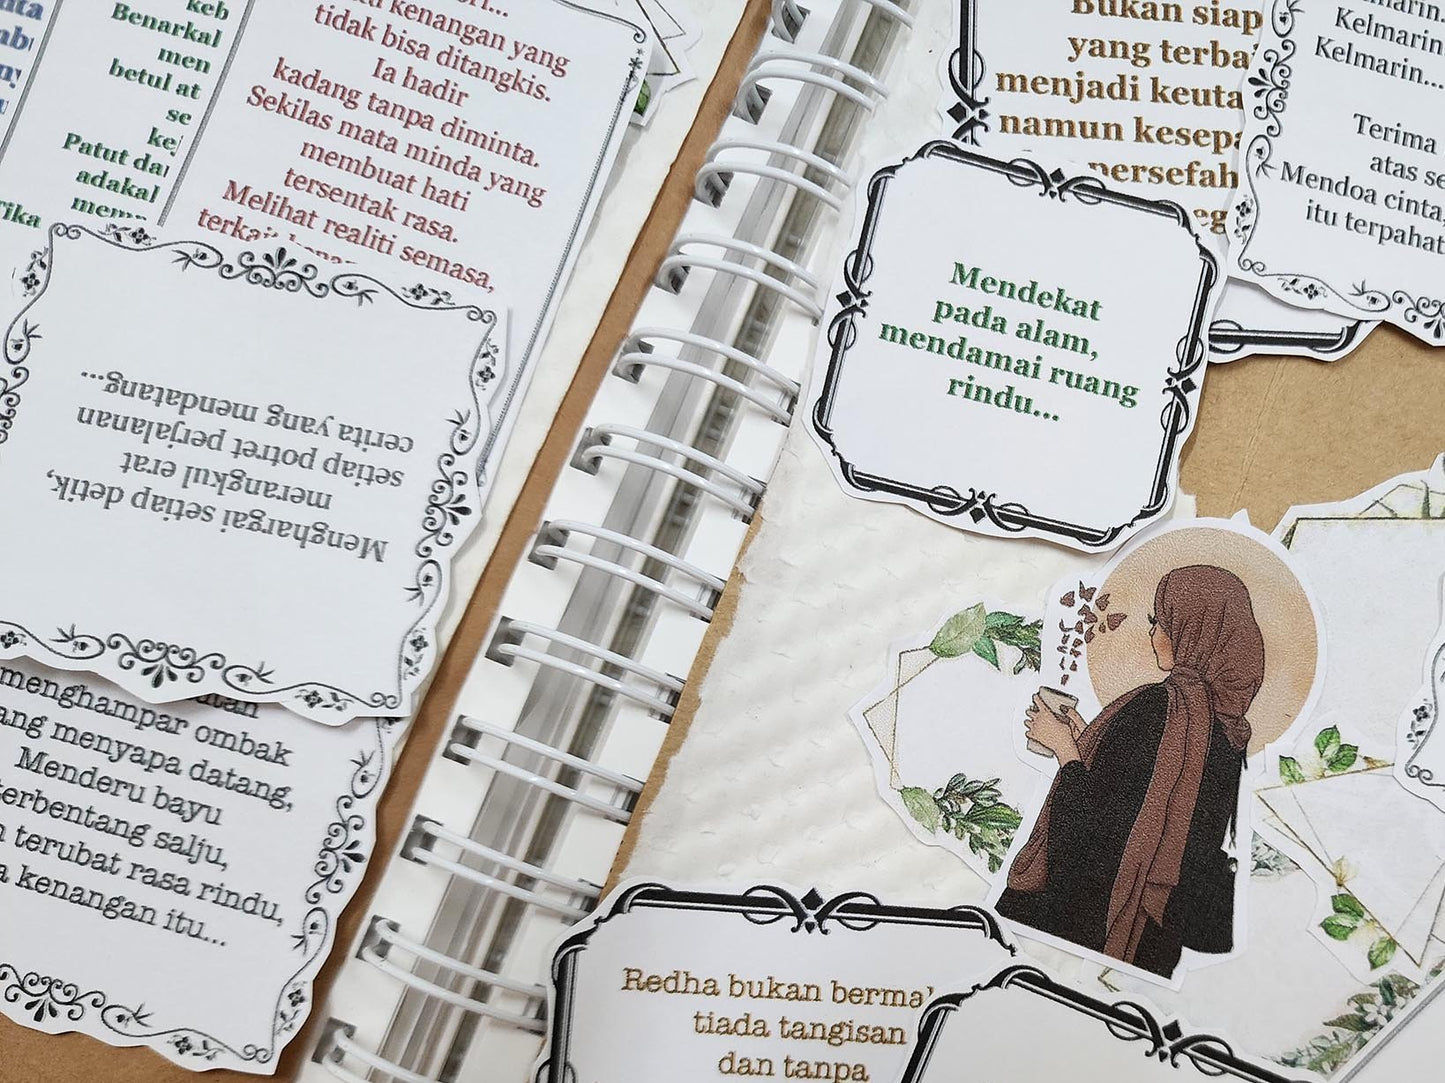 keb
Benarkal
men
betul at
se
Patut da
adakal
kenangan yang
tidak bisa ditangkis.
Ia hadir
kadang tanpa diminta.
Sekilas mata minda yang
membuat hati
tersentak rasa.
Melihat realiti semasa,
Menghargai setiap detik,
merangkul erat
setiap potret perjalanan
cerita yang mendatang...
menghampar ombak
ang menyapa datang,
Menderu bayu
erbentang salju,
terubat rasa rindu,
kenangan itu...
Bukan siap
yang terba
menjadi keuta
namun kesepa
persefah
Kelmarin
Kelmarin...
Terima
atas se
Mendoa cinta
itu terpahat
Mendekat
pada alam,
mendamai ruang
rindu...
Redha bukan berma
tiada tangisan
dan tanpa